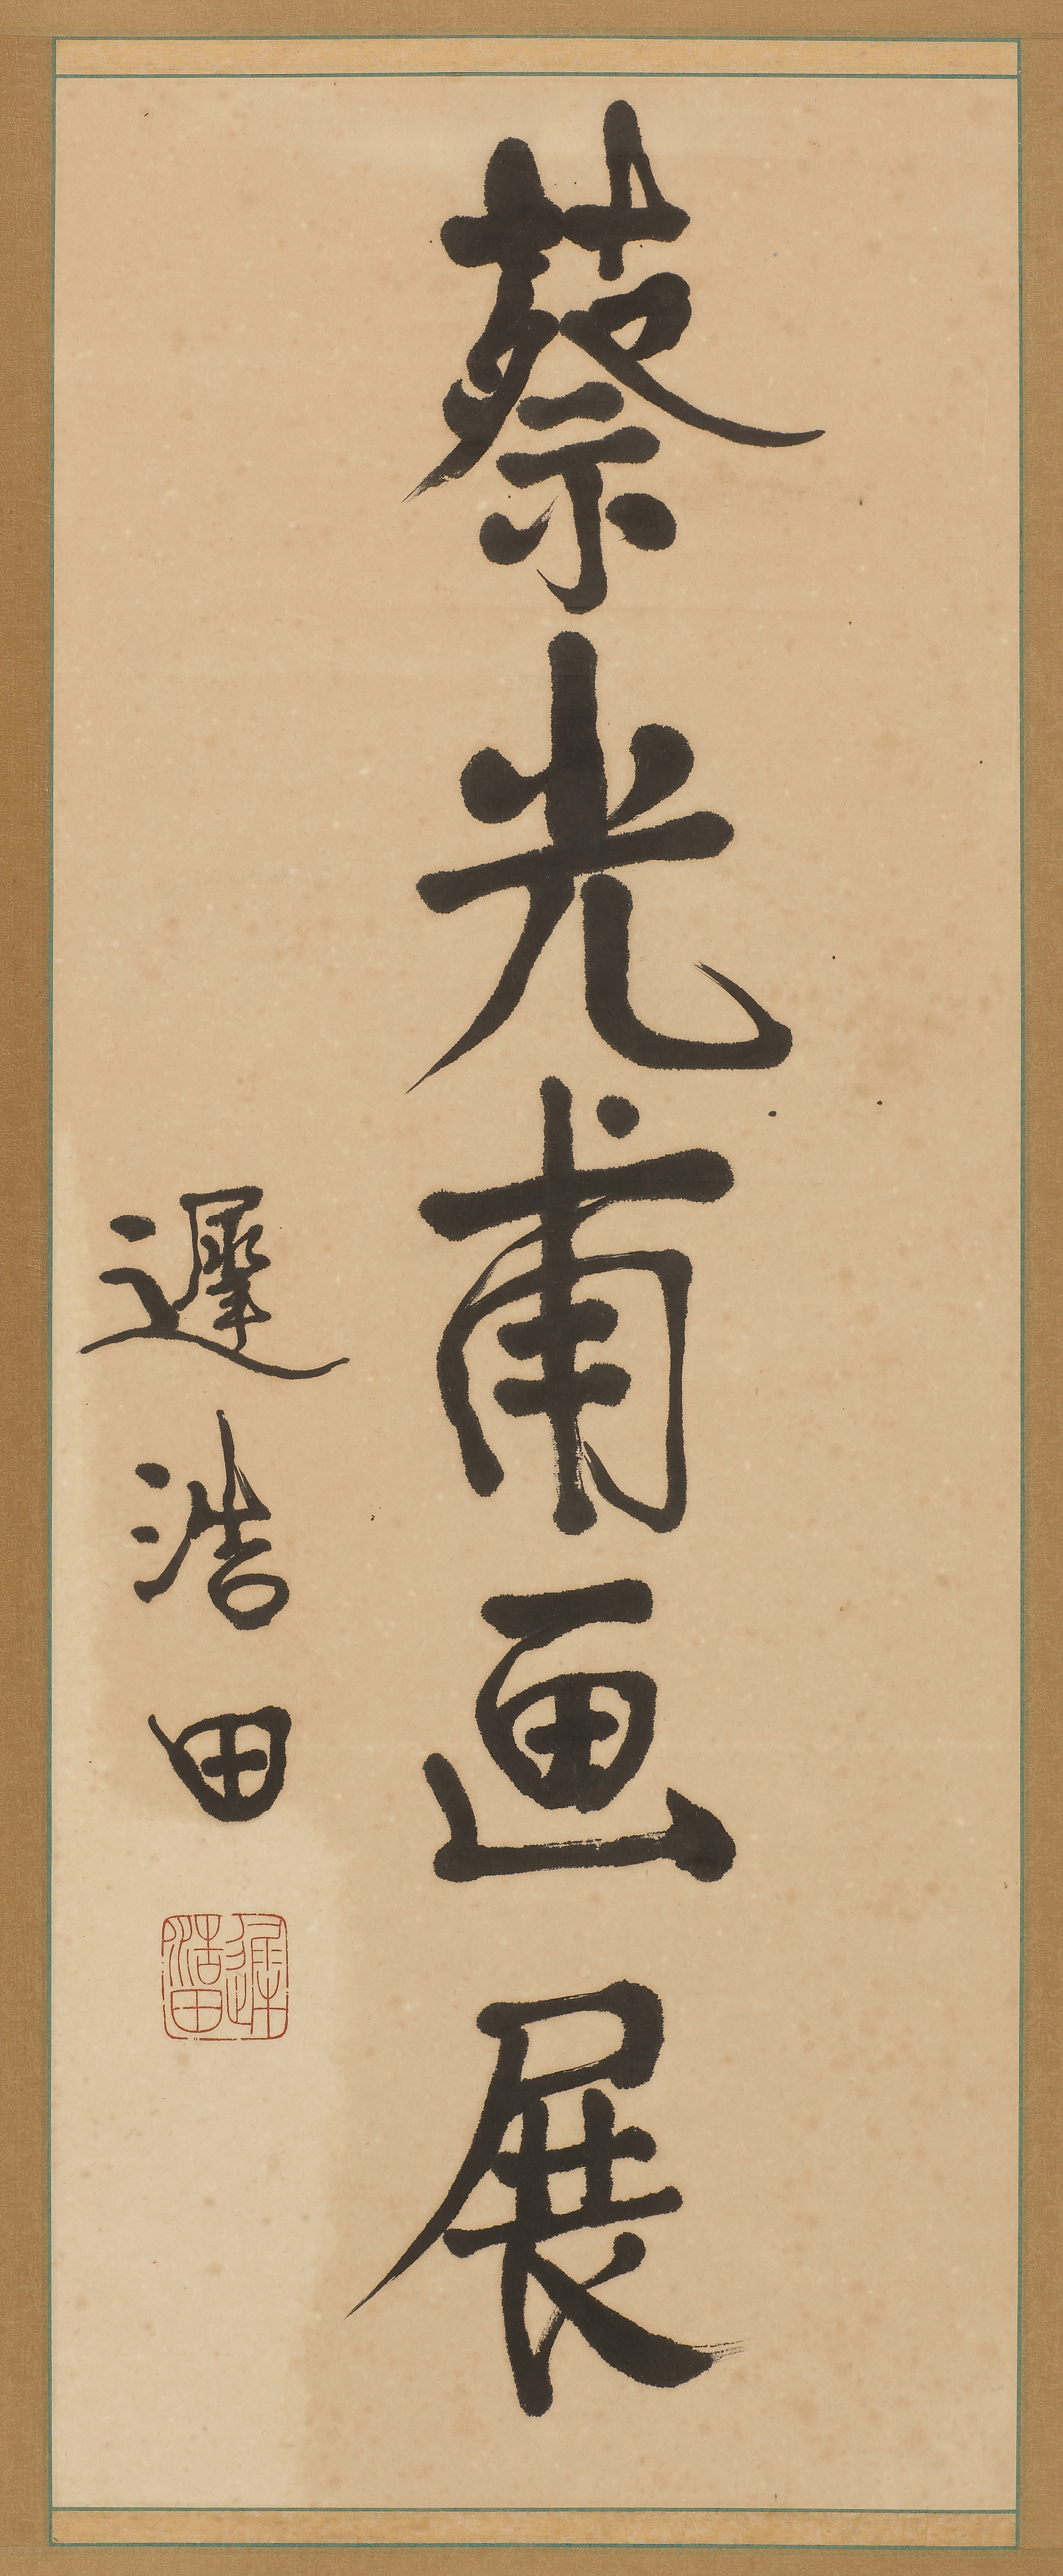 蔡光甫画展
遲浩田
遲浩田